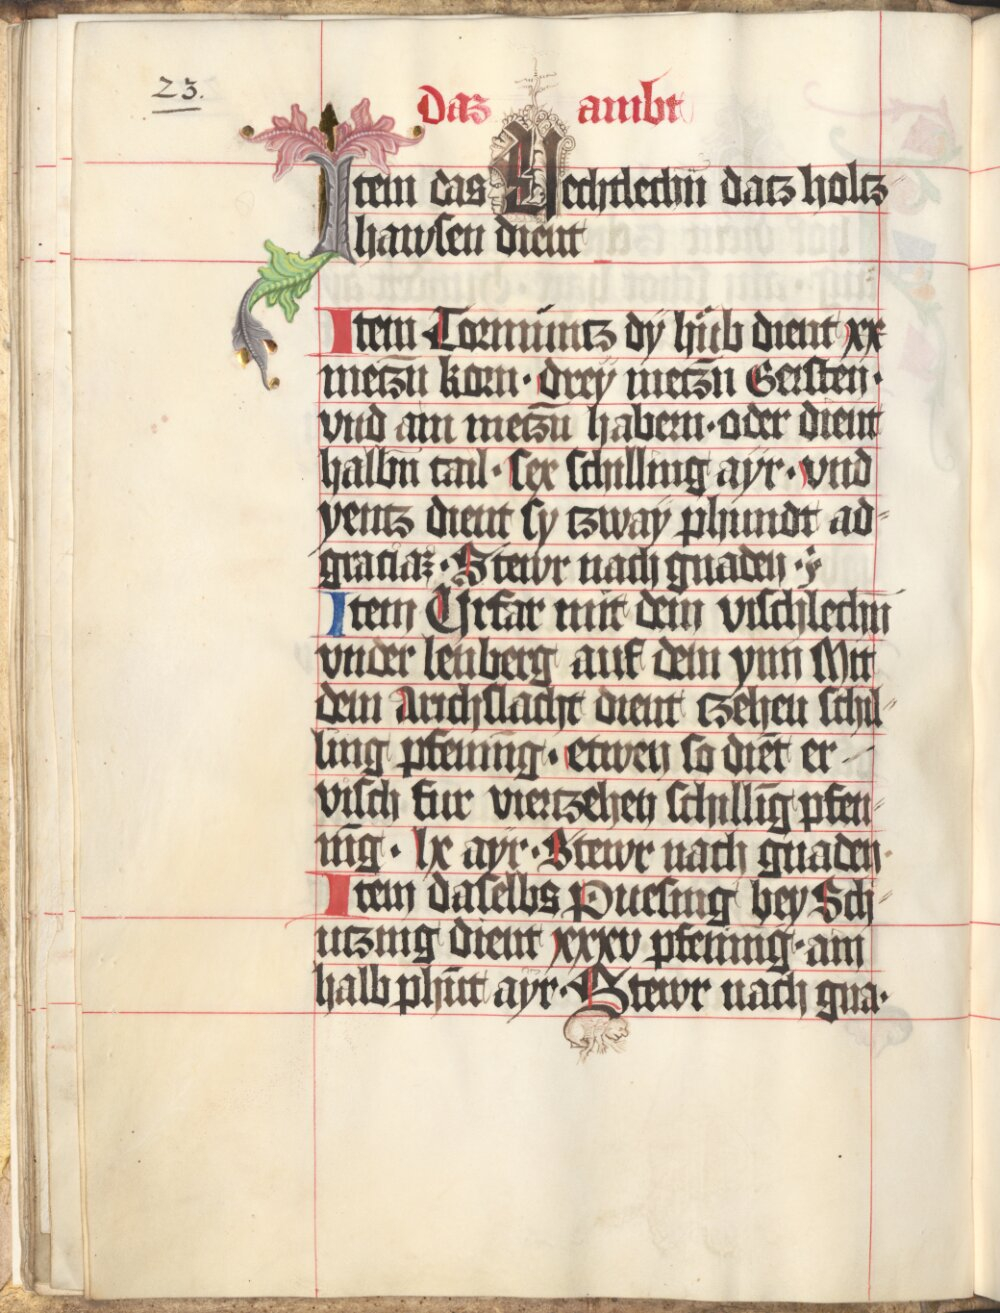 23.
Das ambt
Item das Vechtlechn̄ datz holtz
hawsen dient
Item Tormüntz dy hüb dient xx
metzn̄ korn · dreÿ metzn̄ Gersten ·
vnd ain metzn̄ habern · oder dient
halbn̄ tail · sex schilling aÿr · vnd
yentz dient sy tzway phundt ad
graciaz · Stewr nach gnaden ·
Item Vrfar mit dem vischlechn̄
vnder lenberg auf dem ynn Mit
dem Archslacht dient tzehen schil
ling pfenning · etwen so diēt er
visch fur viertzehen schilling pfen
nīg · lx aÿr · Stewr nach gnaden ·
Item daselbs Puesing bey Sch
utzing dient xxxv pfening · ain
halb phūt aÿr · Stewr nach gna ·